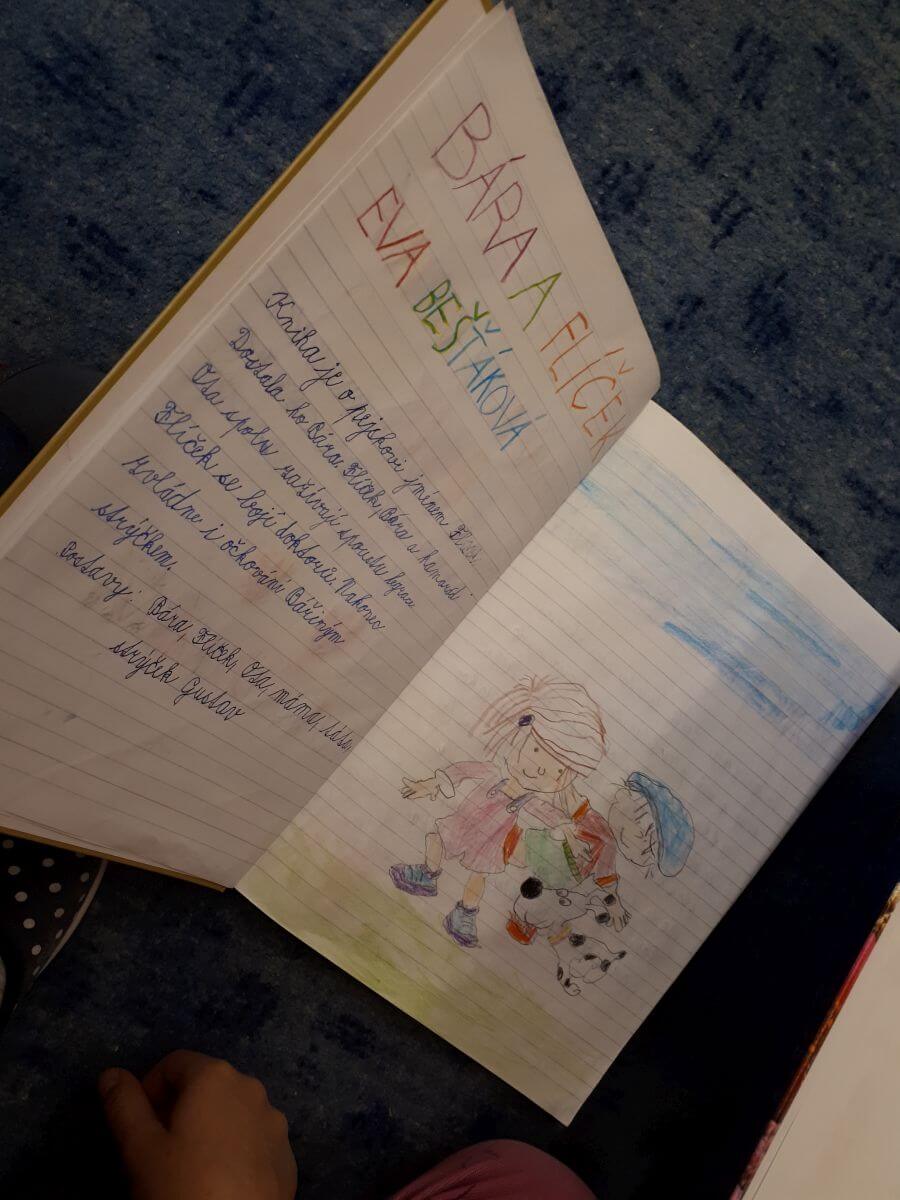 BÁRA A FLÍČEK
EVA BEŠŤÁKOVÁ
Kniha je o pejskovi jménem Flíček.
Dostala ho Bára. Flíček, Bára a kamarád
Ota spolu zažívají spoustu legrace
Flíček se bojí doktorů. Nakonec
zvládne i očkování Bářiným
strýčkem.
Postavy: Bára, Flíček, Ota, máma, táta,
strýček Gustav